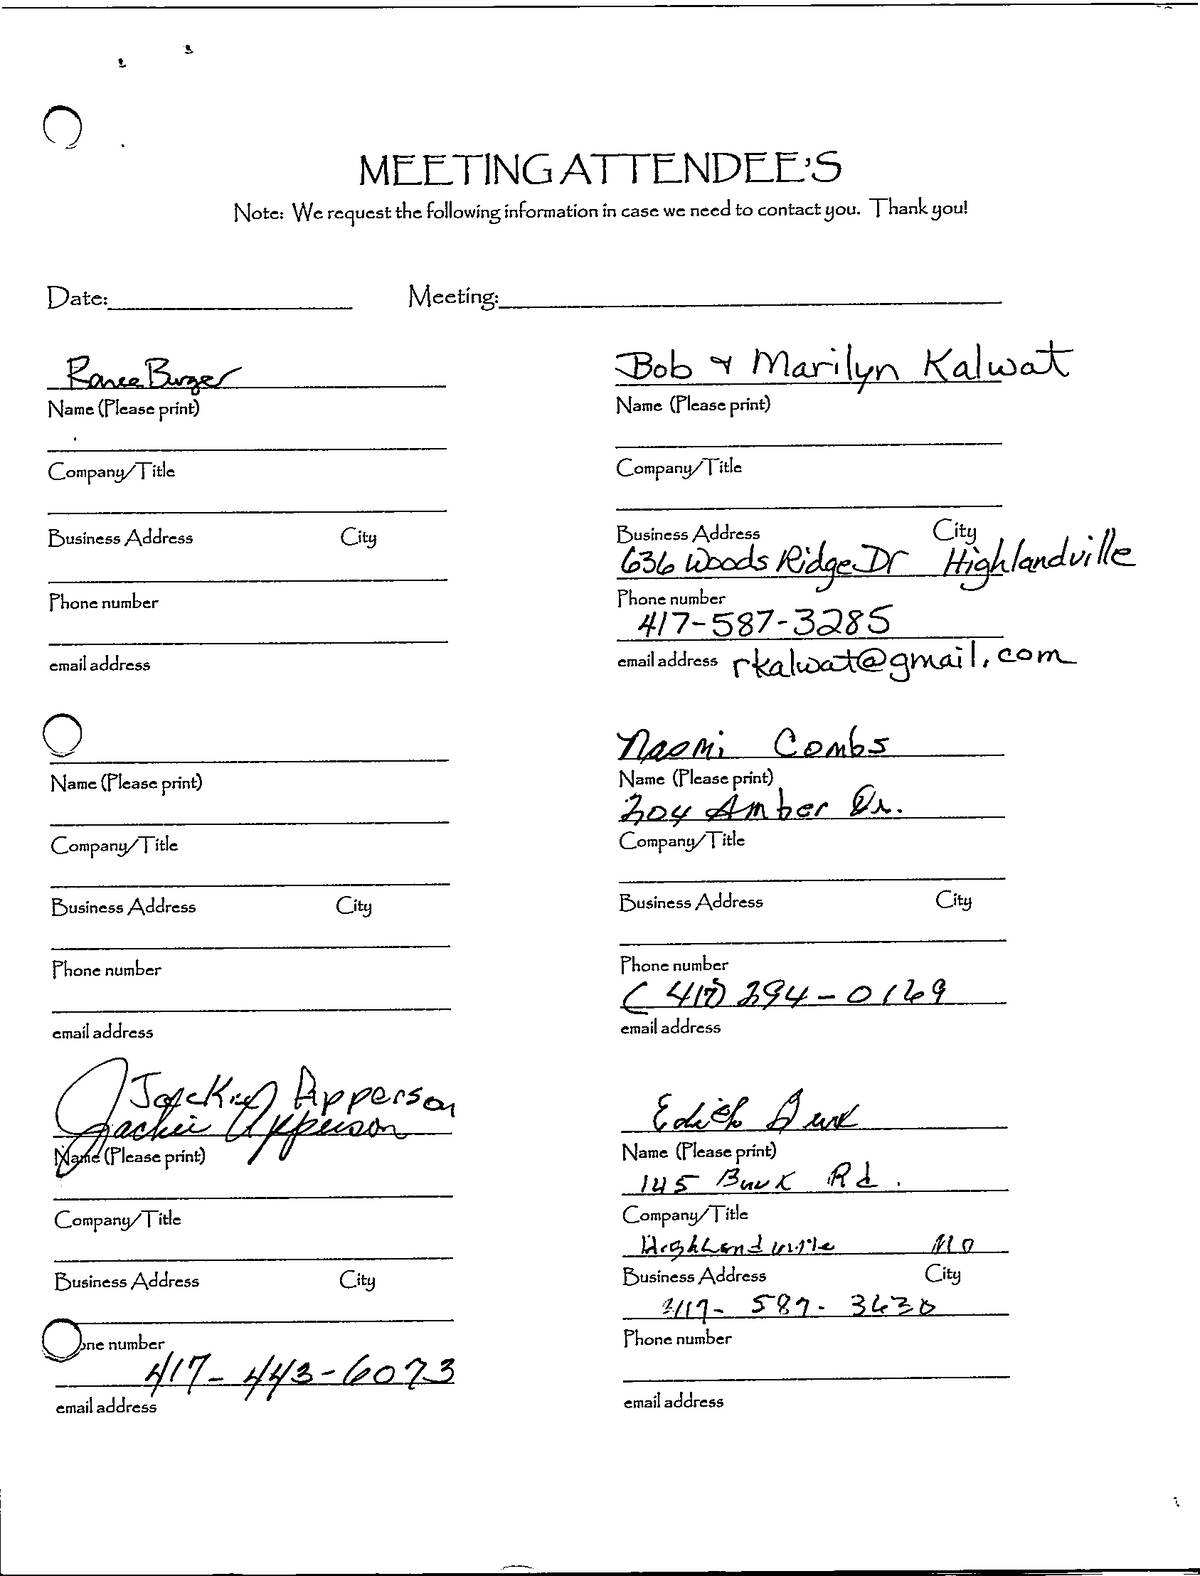 MEETING ATTENDEE'S
Note: We request the following information in case we need to contact you. Thank you!
Date: Meeting:
Ranee Burger
Name (Please print)
Company/Title
Business Address City
Phone number
email address
Bob & Marilyn Kalwat
Name (Please print)
Company/Title
Business Address City
636 Woods Ridge Dr Highlandville
Phone number
417-587-3285
email address rkalwat@gmail.com
Name (Please print)
Company/Title
Business Address City
Phone number
email address
Naomi Combs
Name (Please print)
204 Amber Dr.
Company/Title
Business Address City
Phone number
(417) 294-0169
email address
Jackie Apperson
Jackie Apperson
Name (Please print)
Company/Title
Business Address City
one number
417-443-6073
email address
Edith
Name (Please print)
145 Rd.
Company/Title
Highlandville Mo
Business Address City
417-587-3630
Phone number
email address